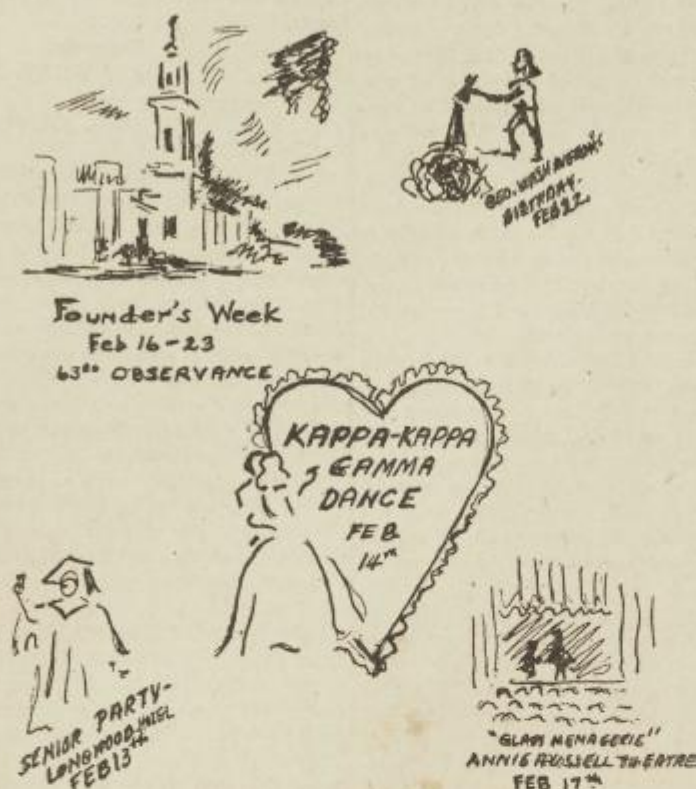 GEO. WASHINGTON'S
BIRTHDAY.
FEB 22
Founder's Week
Feb 16-23
63RD OBSERVANCE
KAPPA-KAPPA
GAMMA
DANCE
FEB
14TH
SENIOR PARTY-
LONGWOOD HOTEL
FEB 13TH
"GLASS MENAGERIE"
ANNIE RUSSELL THEATRE
FEB 17TH